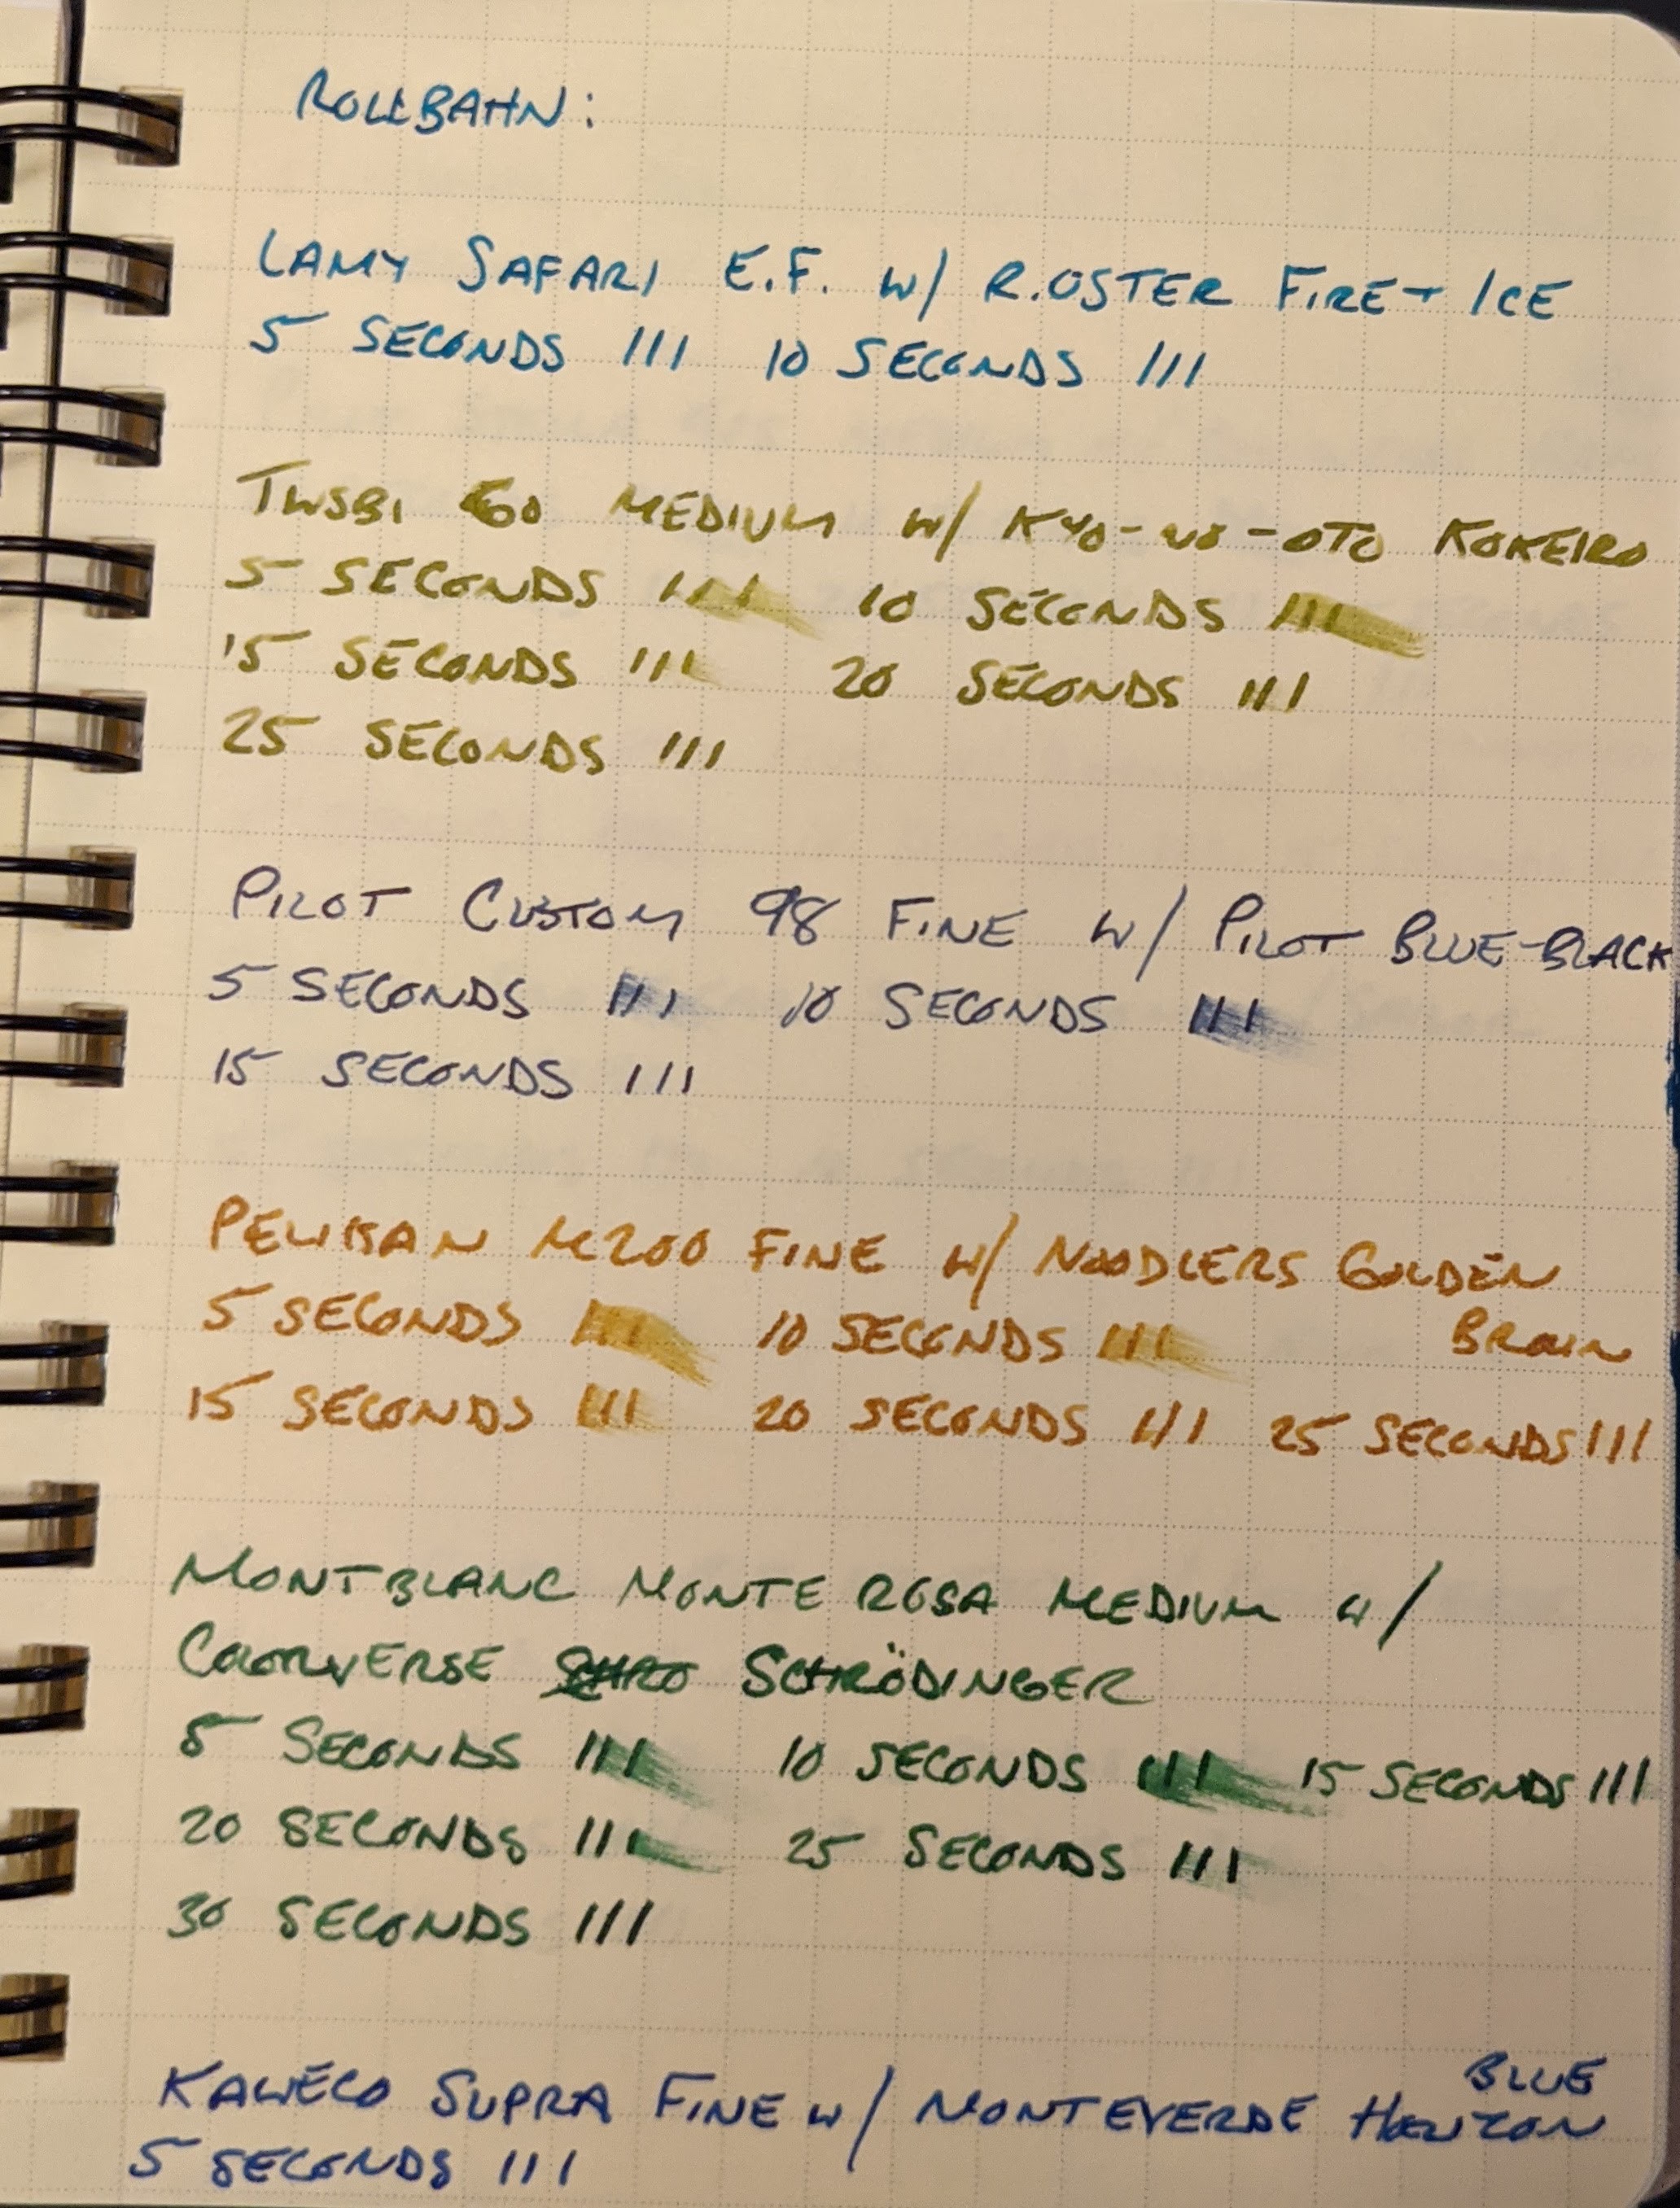 ROLLBAHN:
LAMY SAFARI E.F. W/ R.OSTER FIRE + ICE
5 SECONDS III 10 SECONDS III
TWSBI GO MEDIUM W/ KYO-NO-OTO KOKEIRO
5 SECONDS III 10 SECONDS III
15 SECONDS III 20 SECONDS III
25 SECONDS III
PILOT CUSTOM 98 FINE W/ PILOT BLUE-BLACK
5 SECONDS III 10 SECONDS III
15 SECONDS III
PELIKAN M200 FINE W/ NOODLERS GOLDEN
BROWN
5 SECONDS III 10 SECONDS III
15 SECONDS III 20 SECONDS III 25 SECONDS III
MONTBLANC MONTE ROSA MEDIUM W/
COLORVERSE SCHRO SCHRÖDINGER
5 SECONDS III 10 SECONDS III 15 SECONDS III
20 SECONDS III 25 SECONDS III
30 SECONDS III
KAWECO SUPRA FINE W/ MONTEVERDE HORIZON
BLUE
5 SECONDS III